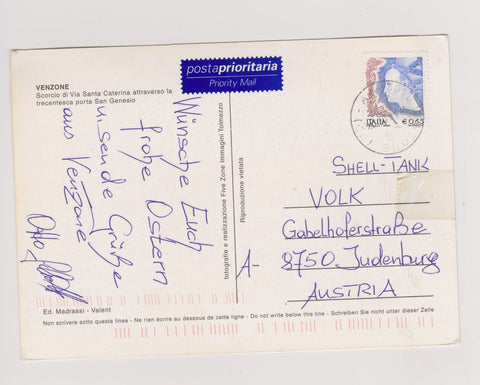 VENZONE
Scorcio di Via Santa Caterina attraverso la
trecentesca porta San Genesio
postaprioritaria
Priority Mail
ITALIA € 0,65
Wünsche Euch
frohe Ostern
u. sende Grüße
aus Venzone
Otto
fotografie e realizzazione Five Zone Immagini Tolmezzo
Riproduzione vietata
SHELL-TANK
VOLK
Gabelhoferstraße
A- 8750 Judenburg
AUSTRIA
Ed. Madrassi - Valent
Non scrivere sotto questa linea - Ne rien écrire au dessous de cette ligne - Do not write below this line - Schreiben Sie nicht unter dieser Zeile